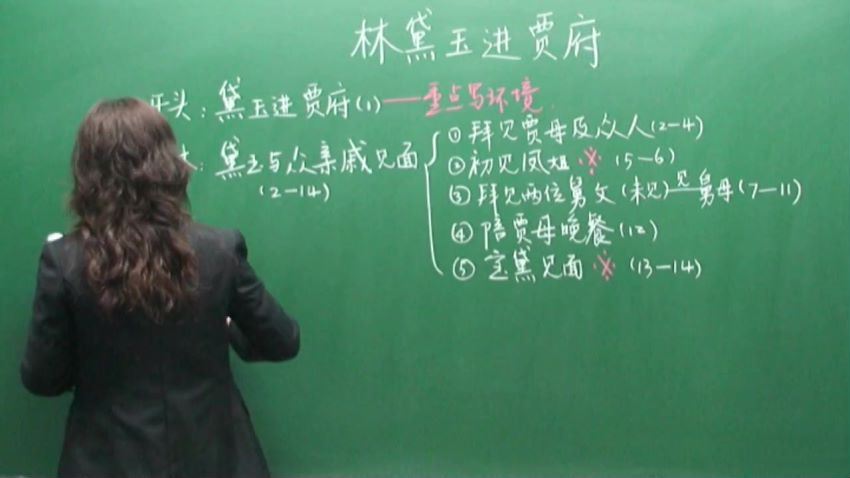 林黛玉进贾府
开头：黛玉进贾府(1)——重点写环境
：黛玉与众亲戚见面
(2—14)
①拜见贾母及众人(2—4)
②初见凤姐※(5—6)
③拜见两位舅父(未见)见舅母(7—11)
④陪贾母晚餐(12)
⑤宝黛见面※(13—14)